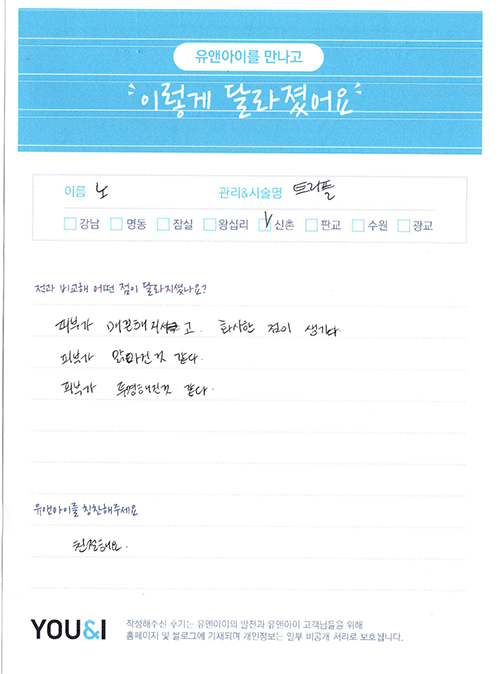 유앤아이를 만나고
이렇게 달라졌어요
이름 노 관리&시술명 트리플
강남 명동 잠실 왕십리 V 신촌 판교 수원 광교
전과 비교해 어떤 점이 달라지셨나요?
피부가 매끈해지고 화사한 점이 생기다
피부가 맑아진것 같다.
피부가 투명해진것 같다.
유앤아이를 칭찬해주세요
친절해요.
YOU&I
작성해주신 후기는 유앤아이의 발전과 유앤아이 고객님들을 위해
홈페이지 및 블로그에 기재되며 개인정보는 일부 비공개 처리로 보호됩니다.